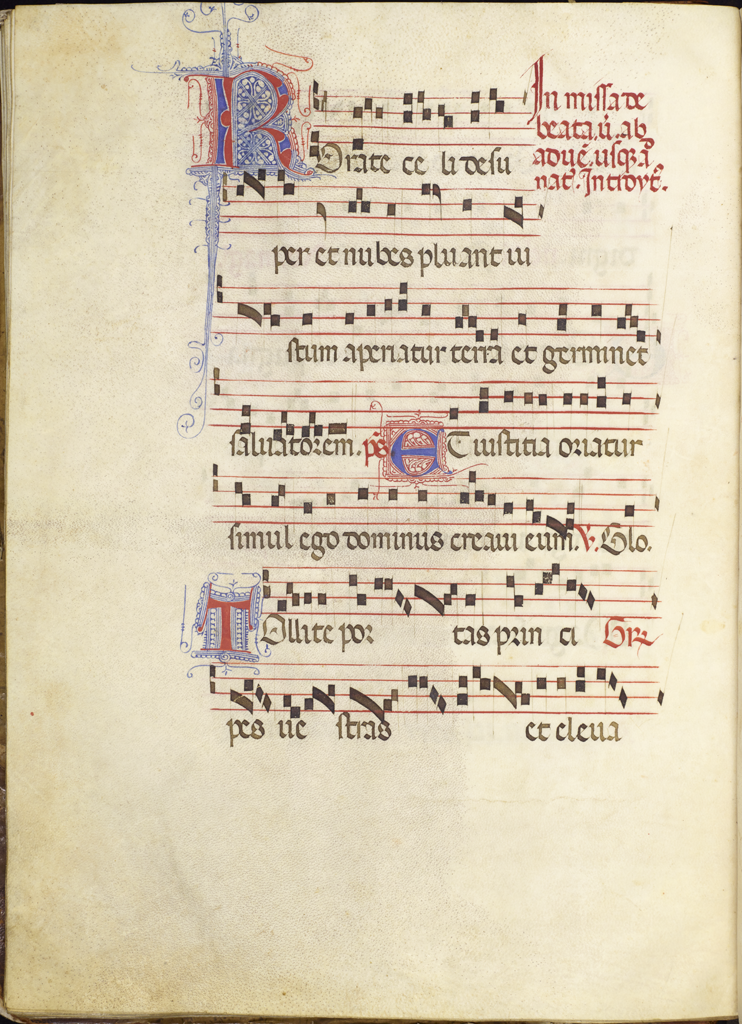 In missa de
beata. ṽ. ab
aduẽ. usq̃ã
nat̃. Introyt̃.
ROrate ce li desu
per et nubes pluant iu
stum aperiatur terra et germinet
saluatorem. p̃s ET iustitia oriatur
simul ego dominus creaui eum. V. Glo.
TOllite por tas prin ci Gr̃
pes ue stras et eleua